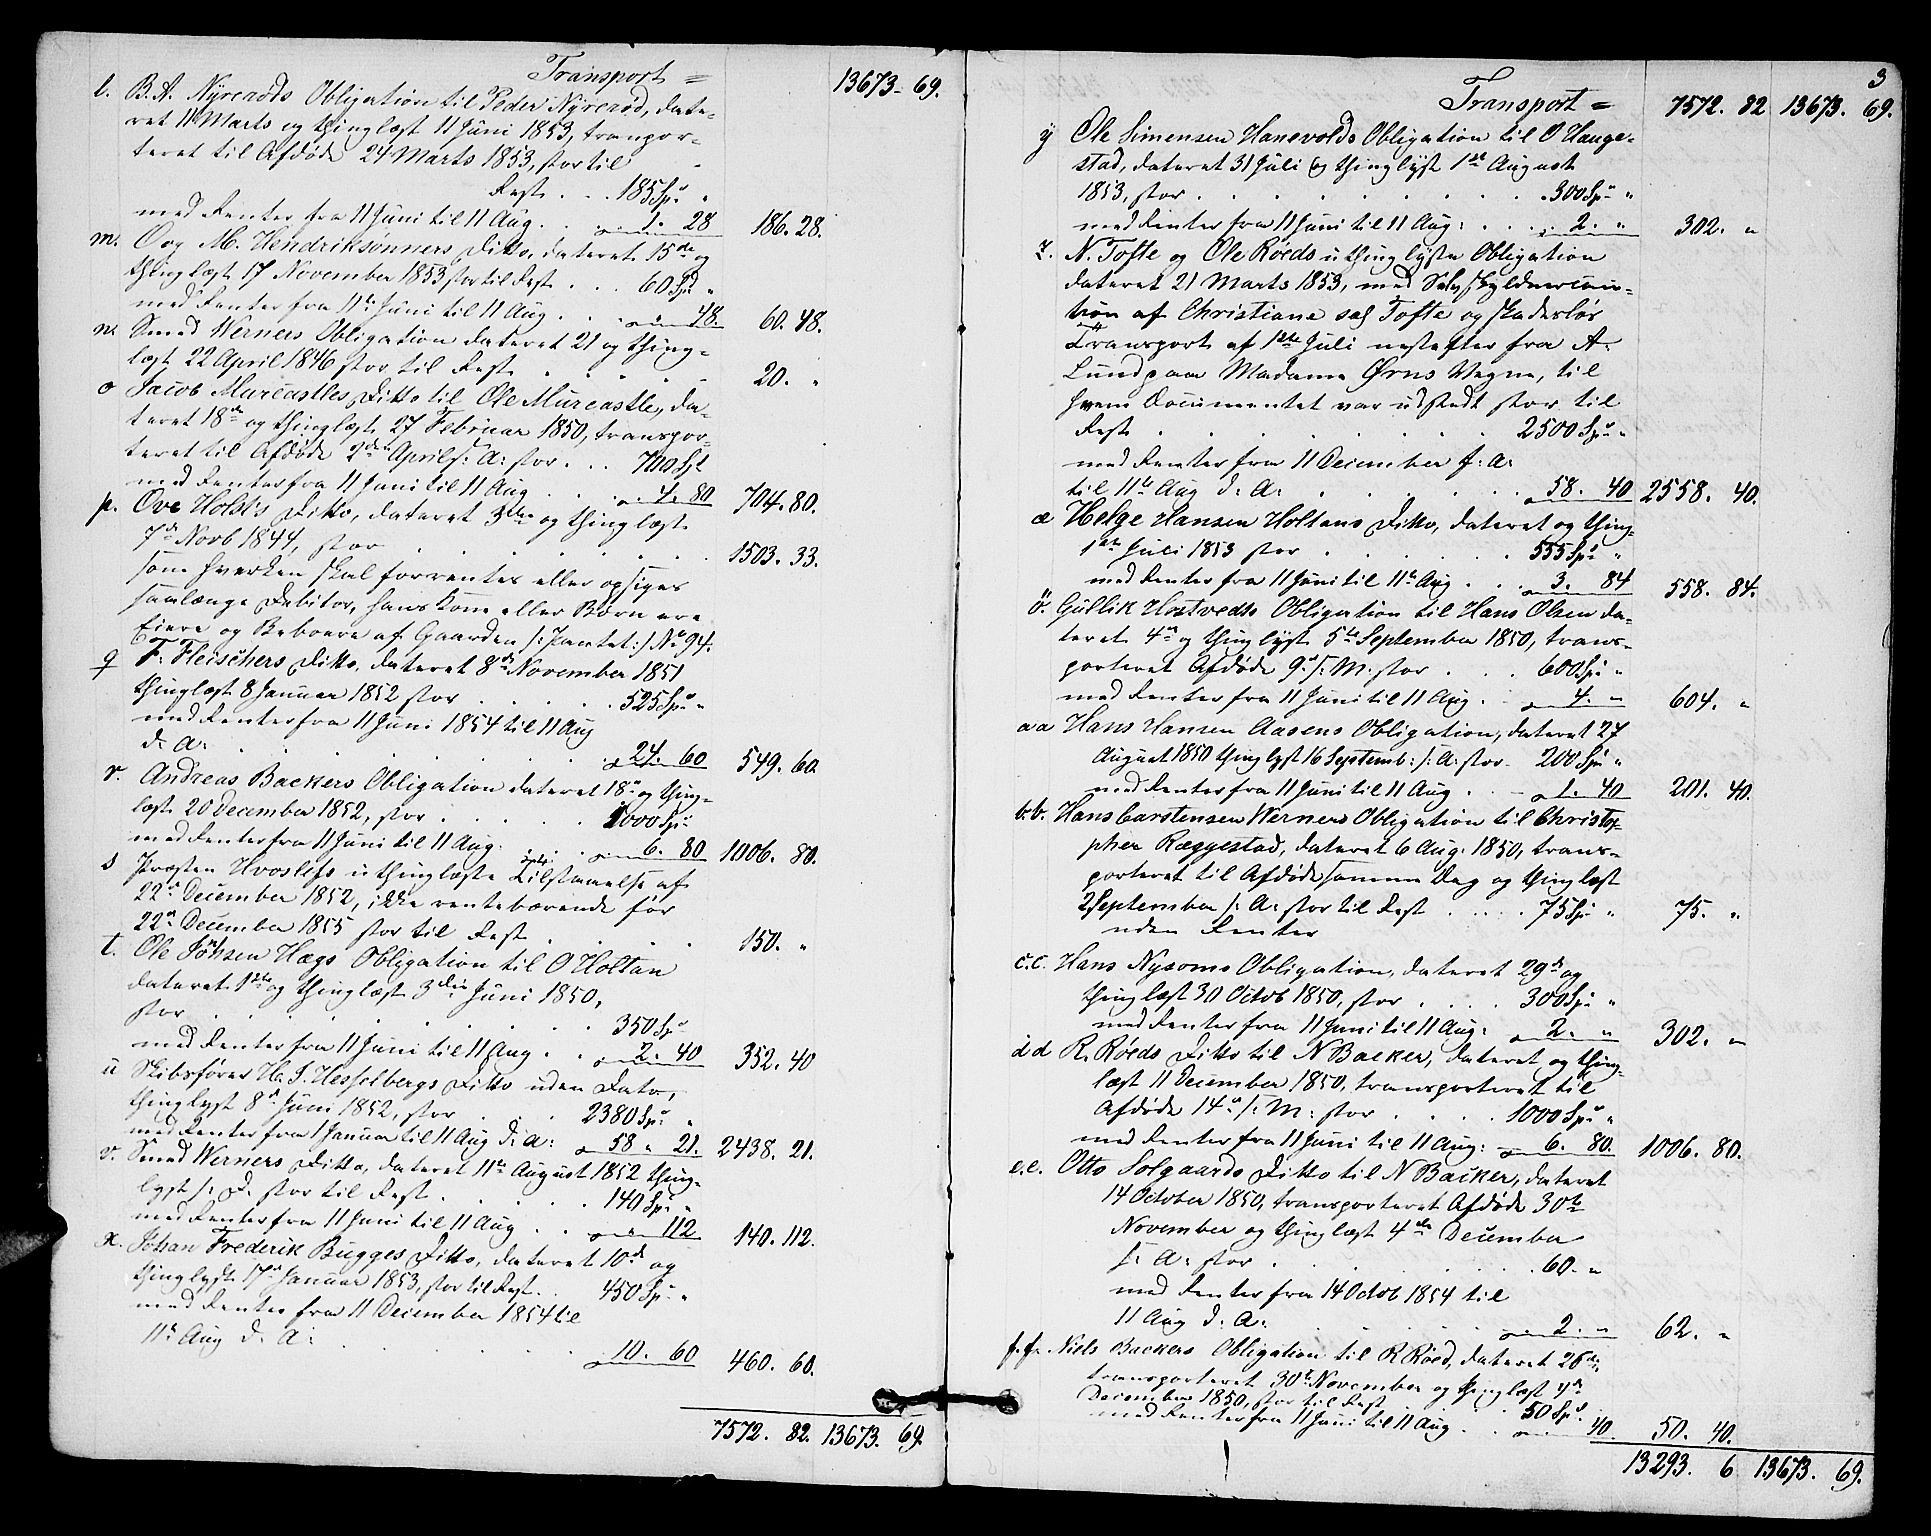 Transport = 13673. 69.
l. B. A. Nyrerøds Obligation til Peder Nyrerød, date-
ret 11 Marts og thinglæst 11 Juni 1853, transpor-
teret til Afdøde 24 Marts 1853, stor til
Rest . . . 185 Sp "
med Renter fra 11 Juni til 11 Aug. . . 1. 28 186. 28.
m. O og M. Hendriksønners Ditto, dateret 15de og
thinglæst 17 November 1853 stor til Rest . . . 60 Sp "
med Renter fra 11te Juni til 11 Aug . . . " 48. 60. 48.
n. Smed Werners Obligation dateret 21 og thing-
læst 22 April 1846 stor til Rest . . . . 20. "
o Jacob Murcastles Ditto til Ole Murcastle, da-
teret 18de og thinglæst 27 Februar 1850, transpor-
teret til Afdøde 2den April s: A: stor . . . 700 Sp
med Renter fra 11 Juni til 11 Aug . . . 4. 80 704. 80.
p. Ove Holst's Ditto, dateret 3die og thinglæst
7de Novb 1844, stor . . . . 1503. 33.
som hverken skal forrentes eller opsiges
saalænge Debitor, hans Kone eller Børn ere
Eiere og Beboere af Gaarden /: Pantet :/ No 94.
q F. Fleischers Ditto, dateret 8de November 1851
thinglæst 8 Januar 1852 stor . . . . 525 Sp "
med Renter fra 11 Juni 1854 til 11 Aug
d: A: . . . . 24. 60 549. 60.
r. Andreas Backers Obligation dateret 18de og thing-
læst 20 December 1852, stor . . . . 1000 Sp
med Renter fra 11 Juni til 11 Aug: . . . 6. 80 1006. 80.
s Præsten Hvoslefs uthinglæste Tilstaaelse af
22de December 1852, ikke rentebærende før
22de December 1855 stor til Rest . . . . 150. "
t. Ole Johsen Hægs Obligation til O Holtan
dateret 1ste og thinglæst 3die Juni 1850,
stor . . . . 350 Sp
med Renter fra 11 Juni til 11 Aug . . 2. 40 352. 40
u Skibsfører H. J. Hesselbergs Ditto uden Dato,
thinglyst 8de Juni 1852, stor . . . . 2380 Sp "
med Renter fra 1 Januar til 11 Aug d: A: 58 " 21. 2438. 21.
v. Smed Werners Ditto, dateret 11te August 1852 thing-
lyst s: D. stor til Rest . . . . 140 Sp "
med Renter fra 11 Juni til 11 Aug . . " 112 140. 112.
x. Johan Frederik Bugges Ditto, dateret 10de og
thinglyst 17de Januar 1853, stor til Rest . . 450 Sp "
med Renter fra 11 December 1854 til
11te Aug d: A: . . . . 10. 60 460. 60.
7572. 82. 13673. 69.
3
Transport = 7572. 82 13673. 69.
y Ole Simensen Hanevolds Obligation til O Hauge-
stad, dateret 31 Juli og thinglyst 1ste August
1853, stor . . . . 300 Sp "
med Renter fra 11 Juni til 11 Aug: . . . 2. " 302. "
z. N. Tofte og Ole Røeds uthinglyste Obligation
dateret 21 Marts 1853, med Selvskyldnercau-
tion af Christiane sal Tofte og skadesløs
Transport af 1ste Juli næstefter fra A.
Lund paa Madame Ørns Vegne, til
hvem Documentet var udstedt stor til
Rest . . . . 2500 Sp "
med Renter fra 11 December f: A:
til 11te Aug d: A: . . . . 58. 40 2558. 40.
æ Helge Hansen Holtans Ditto, dateret og thing-
1ste Juli 1853 stor . . . . 555 Sp "
med Renter fra 11 Juni til 11te Aug . . . 3. 84 558. 84.
ö. Gullik Hostvedts Obligation til Hans Olsen da-
teret 4de og thinglyst 5te September 1850, trans-
porteret Afdøde 9de s: M: stor . . . 600 Sp "
med Renter fra 11 Juni til 11 Aug . . 4. " 604. "
aa Hans Hansen Aasens Obligation, dateret 27
August 1850 thinglyst 16 Septemb: s: A: stor . 200 Sp "
med Renter fra 11 Juni til 11 Aug . . 1. 40 201. 40.
b.b. Hans Carstensen Werners Obligation til Christo-
pher Ræggestad, dateret 6 Aug. 1850, trans-
porteret til Afdøde samme Dag og thinglæst
2 September s: A: stor til Rest . . . . 75 Sp " 75. "
uden Renter
c.c. Hans Nysoms Obligation, dateret 29de og
thinglæst 30 Octob 1850, stor . . . . 300 Sp "
med Renter fra 11 Juni til 11 Aug: 2. " 302. "
dd R. Røeds Ditto til N Backer, dateret og thing-
læst 11 December 1850, transporteret til
Afdøde 14de s: M: stor . . . . 1000 Sp "
med Renter fra 11 Juni til 11 Aug: 6. 80. 1006. 80.
e.e. Otto Solgaards Ditto til N Backer, dateret
14 October 1850, transporteret Afdøde 30te
November og thinglæst 4de December
s: A: stor . . . . 60. "
med Renter fra 14 Octob 1854 til
11 Aug d: A: . . . . 2. " 62. "
f.f. Niels Backers Obligation til R Røed, dateret 26de,
transporteret 30te November og thinglæst 4de
December 1850, stor til Rest . . . 50 Sp
med Renter fra 11 Juni til 11 Aug . . . 40. 50. 40.
13293. 6 13673. 69.